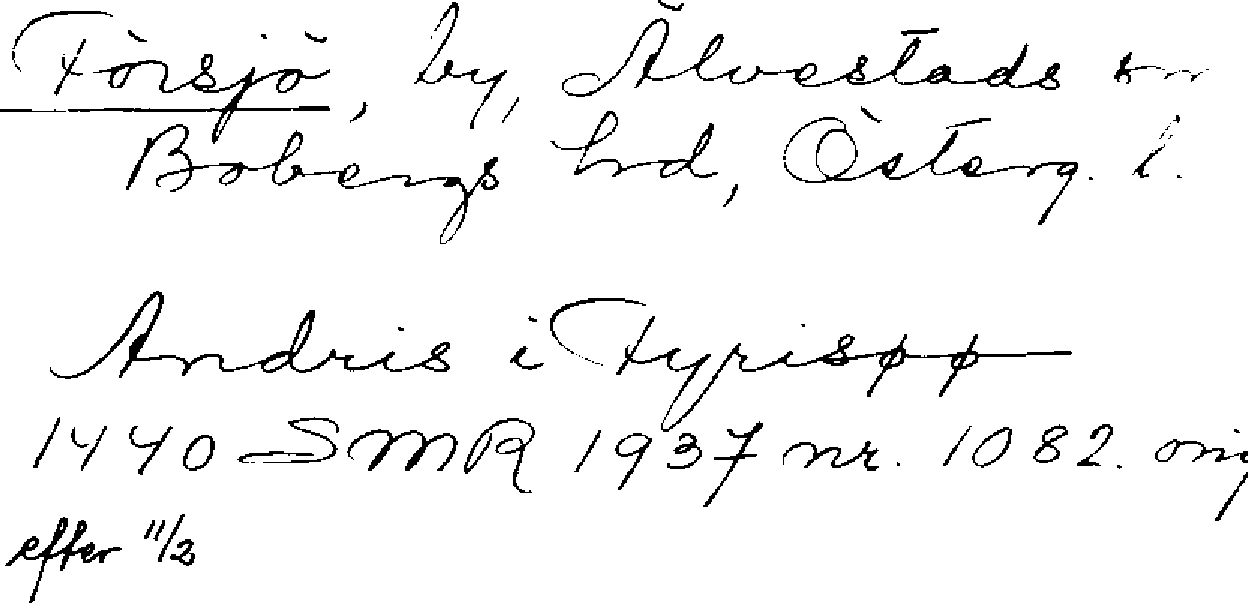 Försjö, by, Älvestads sn
Bobergs hrd, Österg. l.
Andris i Fyrisøø
1440 SMR 1937 nr. 1082. orig
efter 11/2